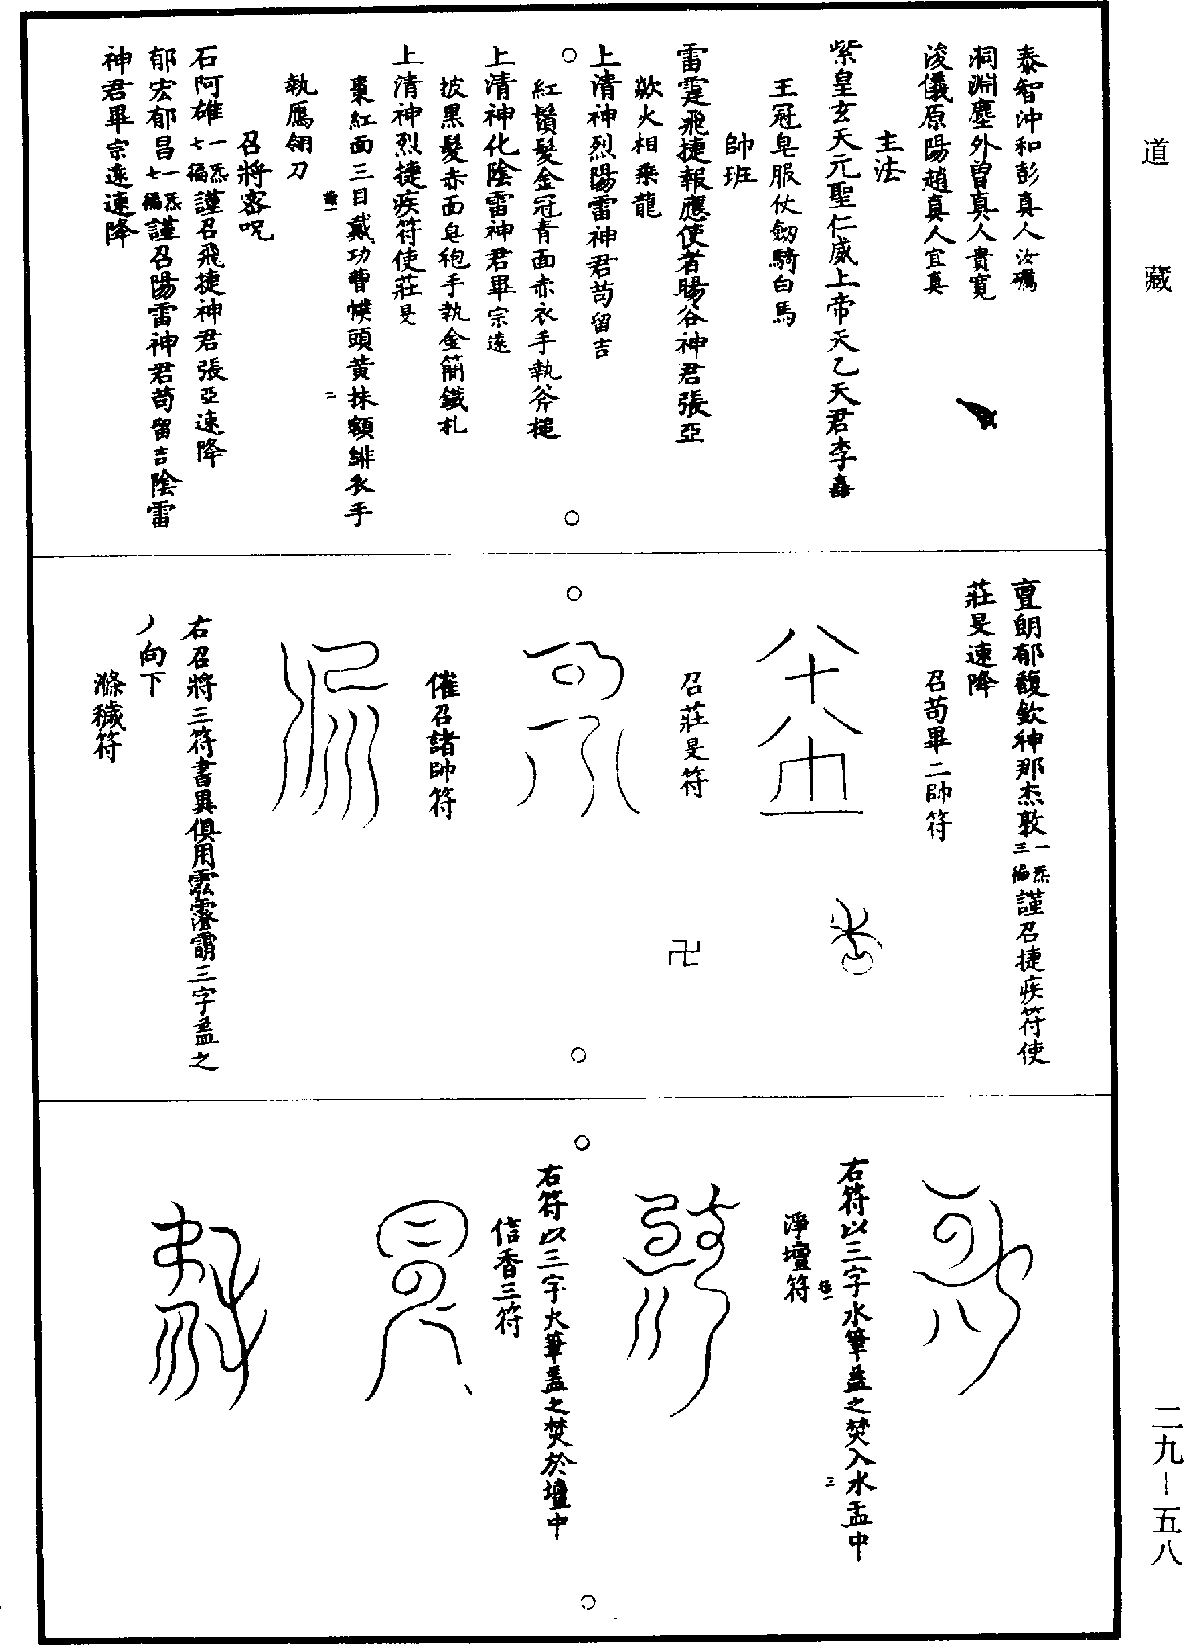 道藏
泰智沖和彭真人汝礪
洞淵塵外曾真人貴寬
浚儀原陽趙真人宜真
主法
紫皇玄天元聖仁威上帝天乙天君李
王冠皂服仗劒騎白馬
帥班
雷霆飛捷報應使者暘谷神君張亞
歘火相乘龍
上清神烈陽雷神君苟留吉
紅鬚髮金冠青面赤衣手執斧槌
上清神化陰雷神君畢宗遠
披黑髮赤面皂袍手執金簡鐵札
上清神烈捷疾符使莊旻
棗紅面三目戴功曹幞頭黃抹額緋衣手
執鴈翎刀
召將密呪
石阿雄一炁七徧謹召飛捷神君張亞速降
郁宏郁昌一炁七徧謹召陽雷神君苟留吉陰雷
神君畢宗遠速降
亶朗郁馥欽神那杰敦一炁三徧謹召捷疾符使
莊旻速降
召苟畢二帥符
召莊旻符
卍
催召諸帥符
右召將三符書異俱用三字盖之
丿向下
滌穢符
右符以三字水筆盖之焚入水盂中
三
淨壇符
右符以三字火筆盖之焚於壇中
信香三符
二九-五八